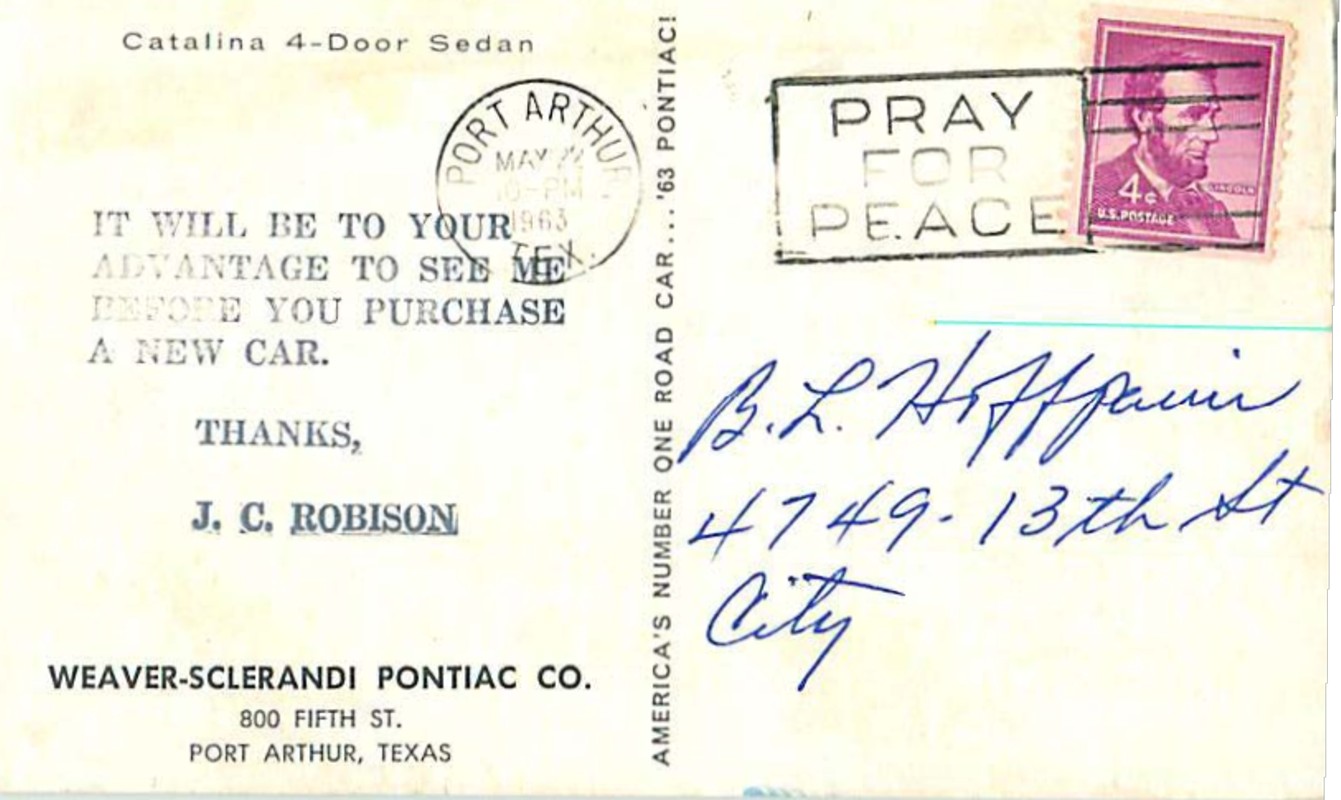 Catalina 4-Door Sedan
PORT ARTHUR
MAY
10-PM
1963
TEX.
IT WILL BE TO YOUR
ADVANTAGE TO SEE ME
BEFORE YOU PURCHASE
A NEW CAR.
THANKS,
J. C. ROBISON
WEAVER-SCLERANDI PONTIAC CO.
800 FIFTH ST.
PORT ARTHUR, TEXAS
AMERICA'S NUMBER ONE ROAD CAR...'63 PONTIAC!
PRAY
FOR
PEACE
LINCOLN
4¢
U.S. POSTAGE
B. L. Hoffpauir
4749-13th St
City